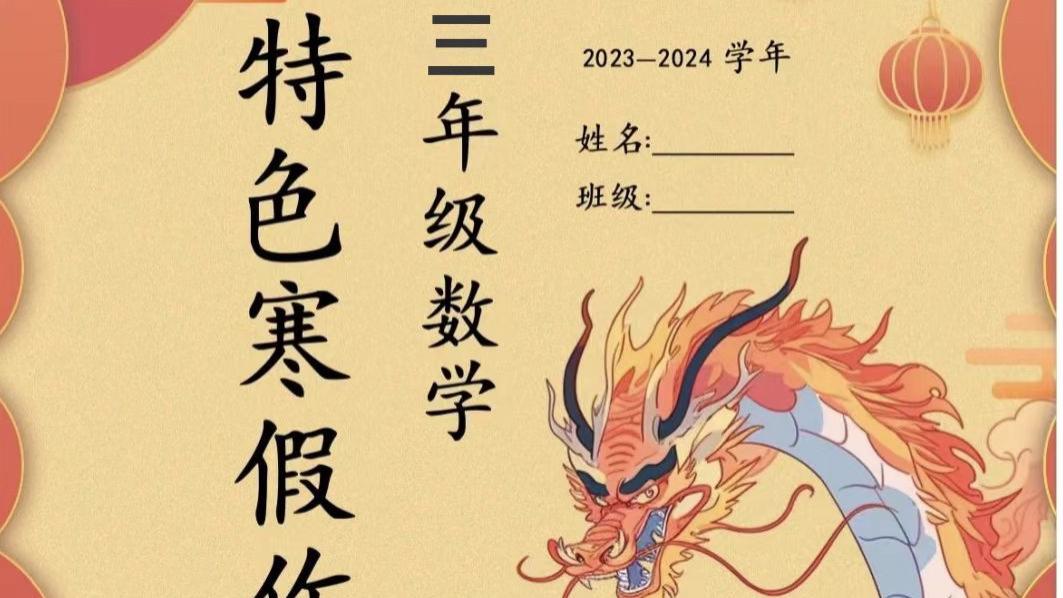 特色寒假
三年级数学
2023—2024 学年
姓名:
班级: